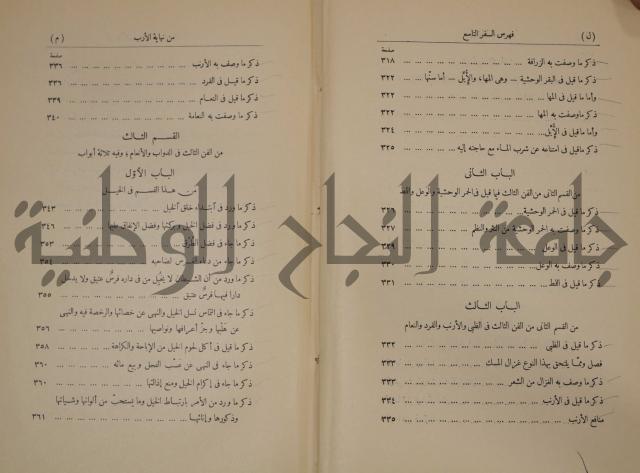 (ل) فهرس السفر التاسع
صفحة
ذكر ما وصفت به الزرافة ... ... ... ... ... ... ٣١٨
ذكر ما قيل فى البقر الوحشية ... وهى المها، والأيّل ... أما سنّها ... ٣٢٢
وأما ما قيل فى المها ... ... ... ... ... ... ٣٢٢
ذكر ما وصفت به المها ... ... ... ... ... ... ٣٢٢
وأما ما قيل فى الأيّل ... ... ... ... ... ... ٣٢٤
ذكر ما قيل فى امتناعه عن شرب الماء مع حاجته إليه ... ... ... ٣٢٥
الباب الثانى
من القسم الثانى من الفن الثالث فيما قيل فى الحمر الوحشية والوعل واللمط
ذكر ما قيل فى الحمر الوحشية ... ... ... ... ...
ذكر ما وصفت به الحمر الوحشية من النثر والنظم ... ... ٣٢٧
ذكر ما قيل فى الوعل ... ... ... ... ... ٣٢٩
ذكر ما وصف به الوعل ... ... ... ... ... ٣٣٠
ذكر ما قيل فى اللمط ... ... ... ... ... ٣٣١
الباب الثالث
من القسم الثانى من الفن الثالث فى الظبى والأرنب والقرد والنعام
ذكر ما قيل فى الظبى ... ... ... ... ... ٣٣٢
فصل ومما يلتحق بهذا النوع غزال المسك ... ... ... ٣٣٣
ذكر ما وصف به الغزال من الشعر ... ... ... ... ٣٣٣
ذكر ما قيل فى الأرنب ... ... ... ... ... ٣٣٤
منافع الأرنب ... ... ... ... ... ... ٣٣٥
من نهاية الأرب (م)
صفحة
ذكر ما وصف به الأرنب ... ... ... ... ... ٣٣٦
ذكر ما قيل فى القرد ... ... ... ... ... ٣٣٦
ذكر ما قيل فى النعام ... ... ... ... ... ٣٣٩
ذكر ما وصفت به النعامة ... ... ... ... ... ٣٤٠
القسم الثالث
من الفن الثالث فى الدواب والأنعام، وفيه ثلاثة أبواب
الباب الأوّل
من هذا القسم فى الخيل
ذكر ما ورد فى ابتداء خلق الخيل ... ... ... ... ٣٤٣
ذكر ما جاء فى فضل الخيل وبركتها وفضل الإنفاق عليها ... ... ٣٤٦
ذكر ما جاء فى فضل الطرق ... ... ... ... ٣٥٣
ذكر ما جاء من دعاء الفرس لصاحبه ... ... ... ٣٥٤
ذكر ما ورد من أن الشيطان لا يخبل من فى داره فرس عتيق ولا يدخل
دارا فيها فرس عتيق ... ... ... ... ... ٣٥٥
ذكر ما جاء فى التماس نسل الخيل والنهى عن خصائها والرخصة فيه والنهى
عن هلبها وجزّ أعرافها ونواصيها ... ... ... ... ٣٥٦
ذكر ما قيل فى أكل لحوم الخيل من الإباحة والكراهة ... ... ٣٥٨
ذكر ما جاء فى النهى عن عسب الفحل وبيع مائه ... ... ... ٣٦٠
ذكر ما جاء فى إكرام الخيل ومنع إذالتها ... ... ... ٣٦٠
ذكر ما ورد من الأمر بارتباط الخيل وما يستحبّ من ألوانها وشياتها
وذكورها وإناثها ... ... ... ... ... ... ٣٦١
جامعة النجاح الوطنية